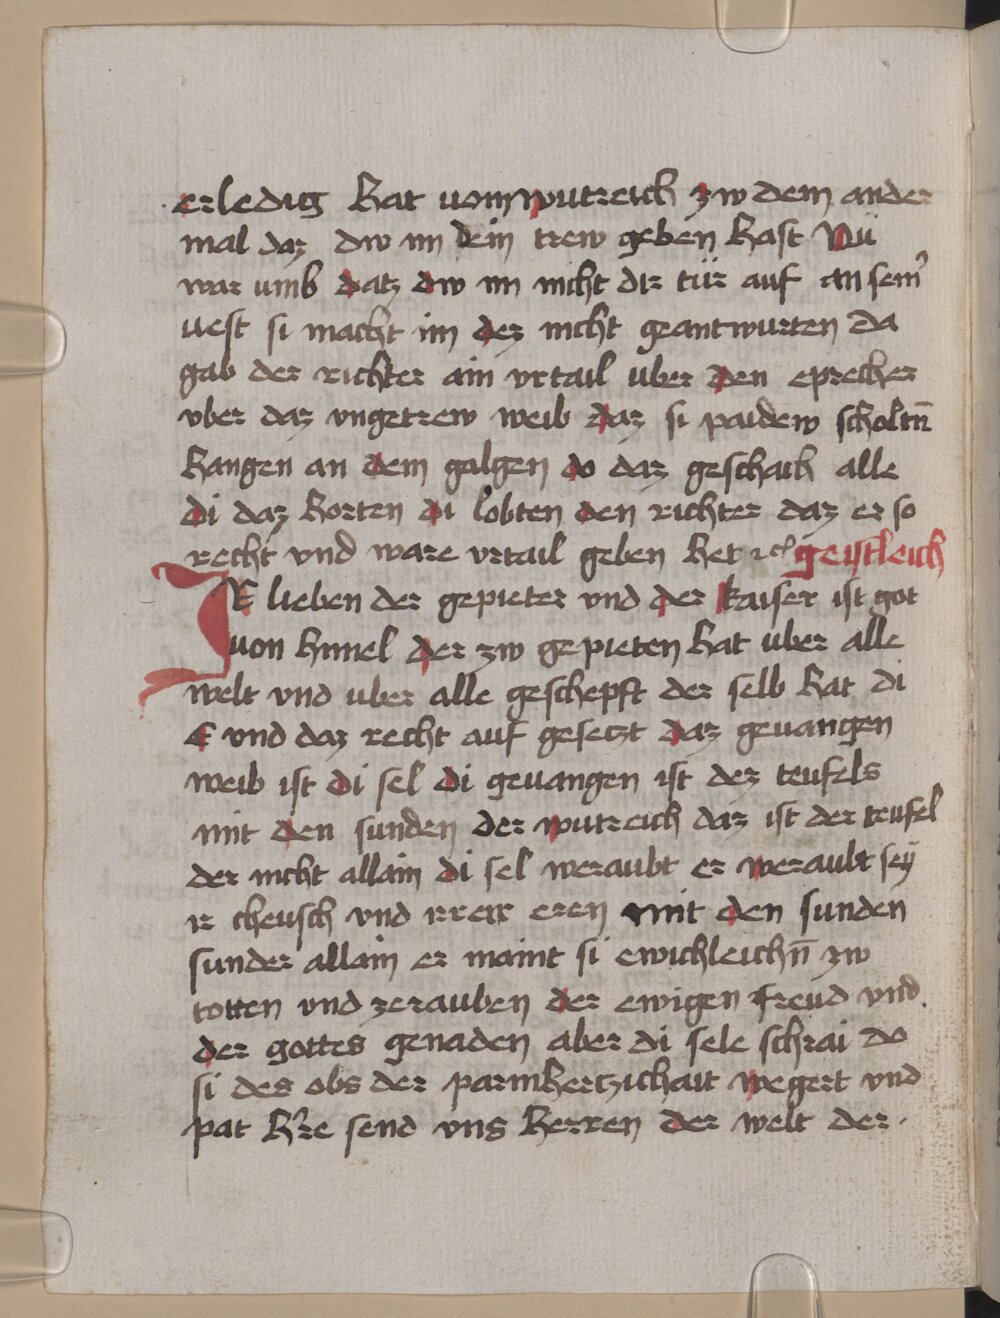 erledig hat vom wutreich zw dem ander
mal daz dw im dein trew geben hast Nu
war umb datz dw im nicht dir tür auf an sem
uest si macht im dez nicht geantwurten da
gab der richter ain vrtail uber den eprecher
vber daz vngetrew weib daz si paidew scholtn̄
hangen an dem galgen do daz geschach alle
di daz horten di lobten den richter daz er so
recht vnd ware vrtail geben het ꝛcꝭ geistleich
IR lieben der gepieter vnd der kaiser ist got
von himel der zw gepieten hat uber alle
welt vnd uber alle geschepft der selb hat di
E vnd daz recht auf gesetzt daz geuangen
weib ist di sel di geuangen ist dez teufels
mit den sunden der wutreich daz ist der teufel
der nicht allain di sel weraubt er weraubt seӱ
ir cheusch vnd irrer eren mit den sunden
sunder allain er maint si ewichleichn̄ zw
totten vnd zerauben der ewigen freud vnd
der gottes genaden aber di sele schrai do
si des obs der parmhertzichait wegert vnd
pat h're send vns herren der welt der